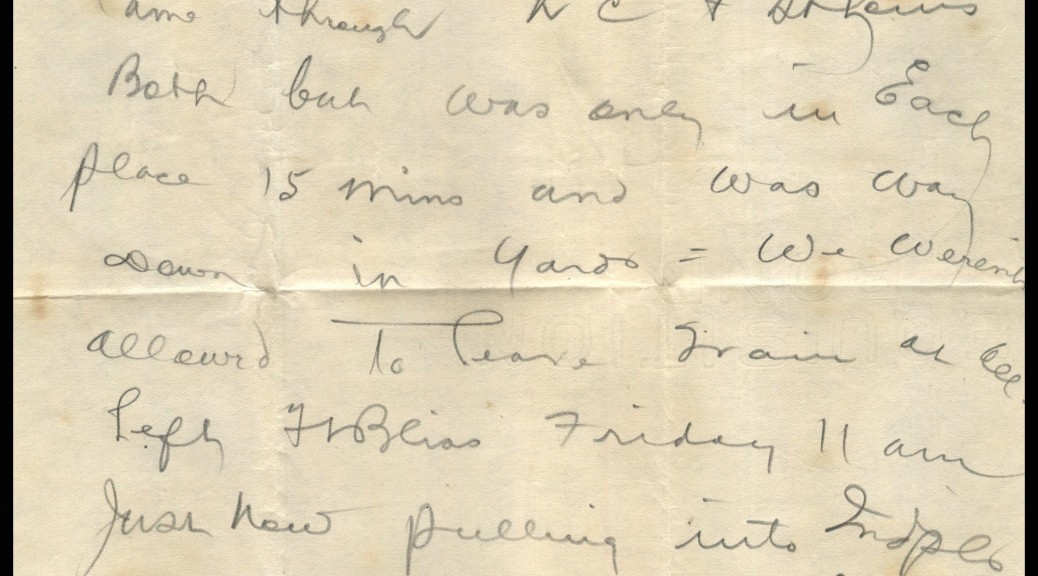 ame through K C & St Louis
Both but was only in Each
place 15 mins and was way
Down in Yards = We Weren't
allowed To leave Train at all
Left Ft Bliss Friday 11 am
Just Now pulling into Indpls